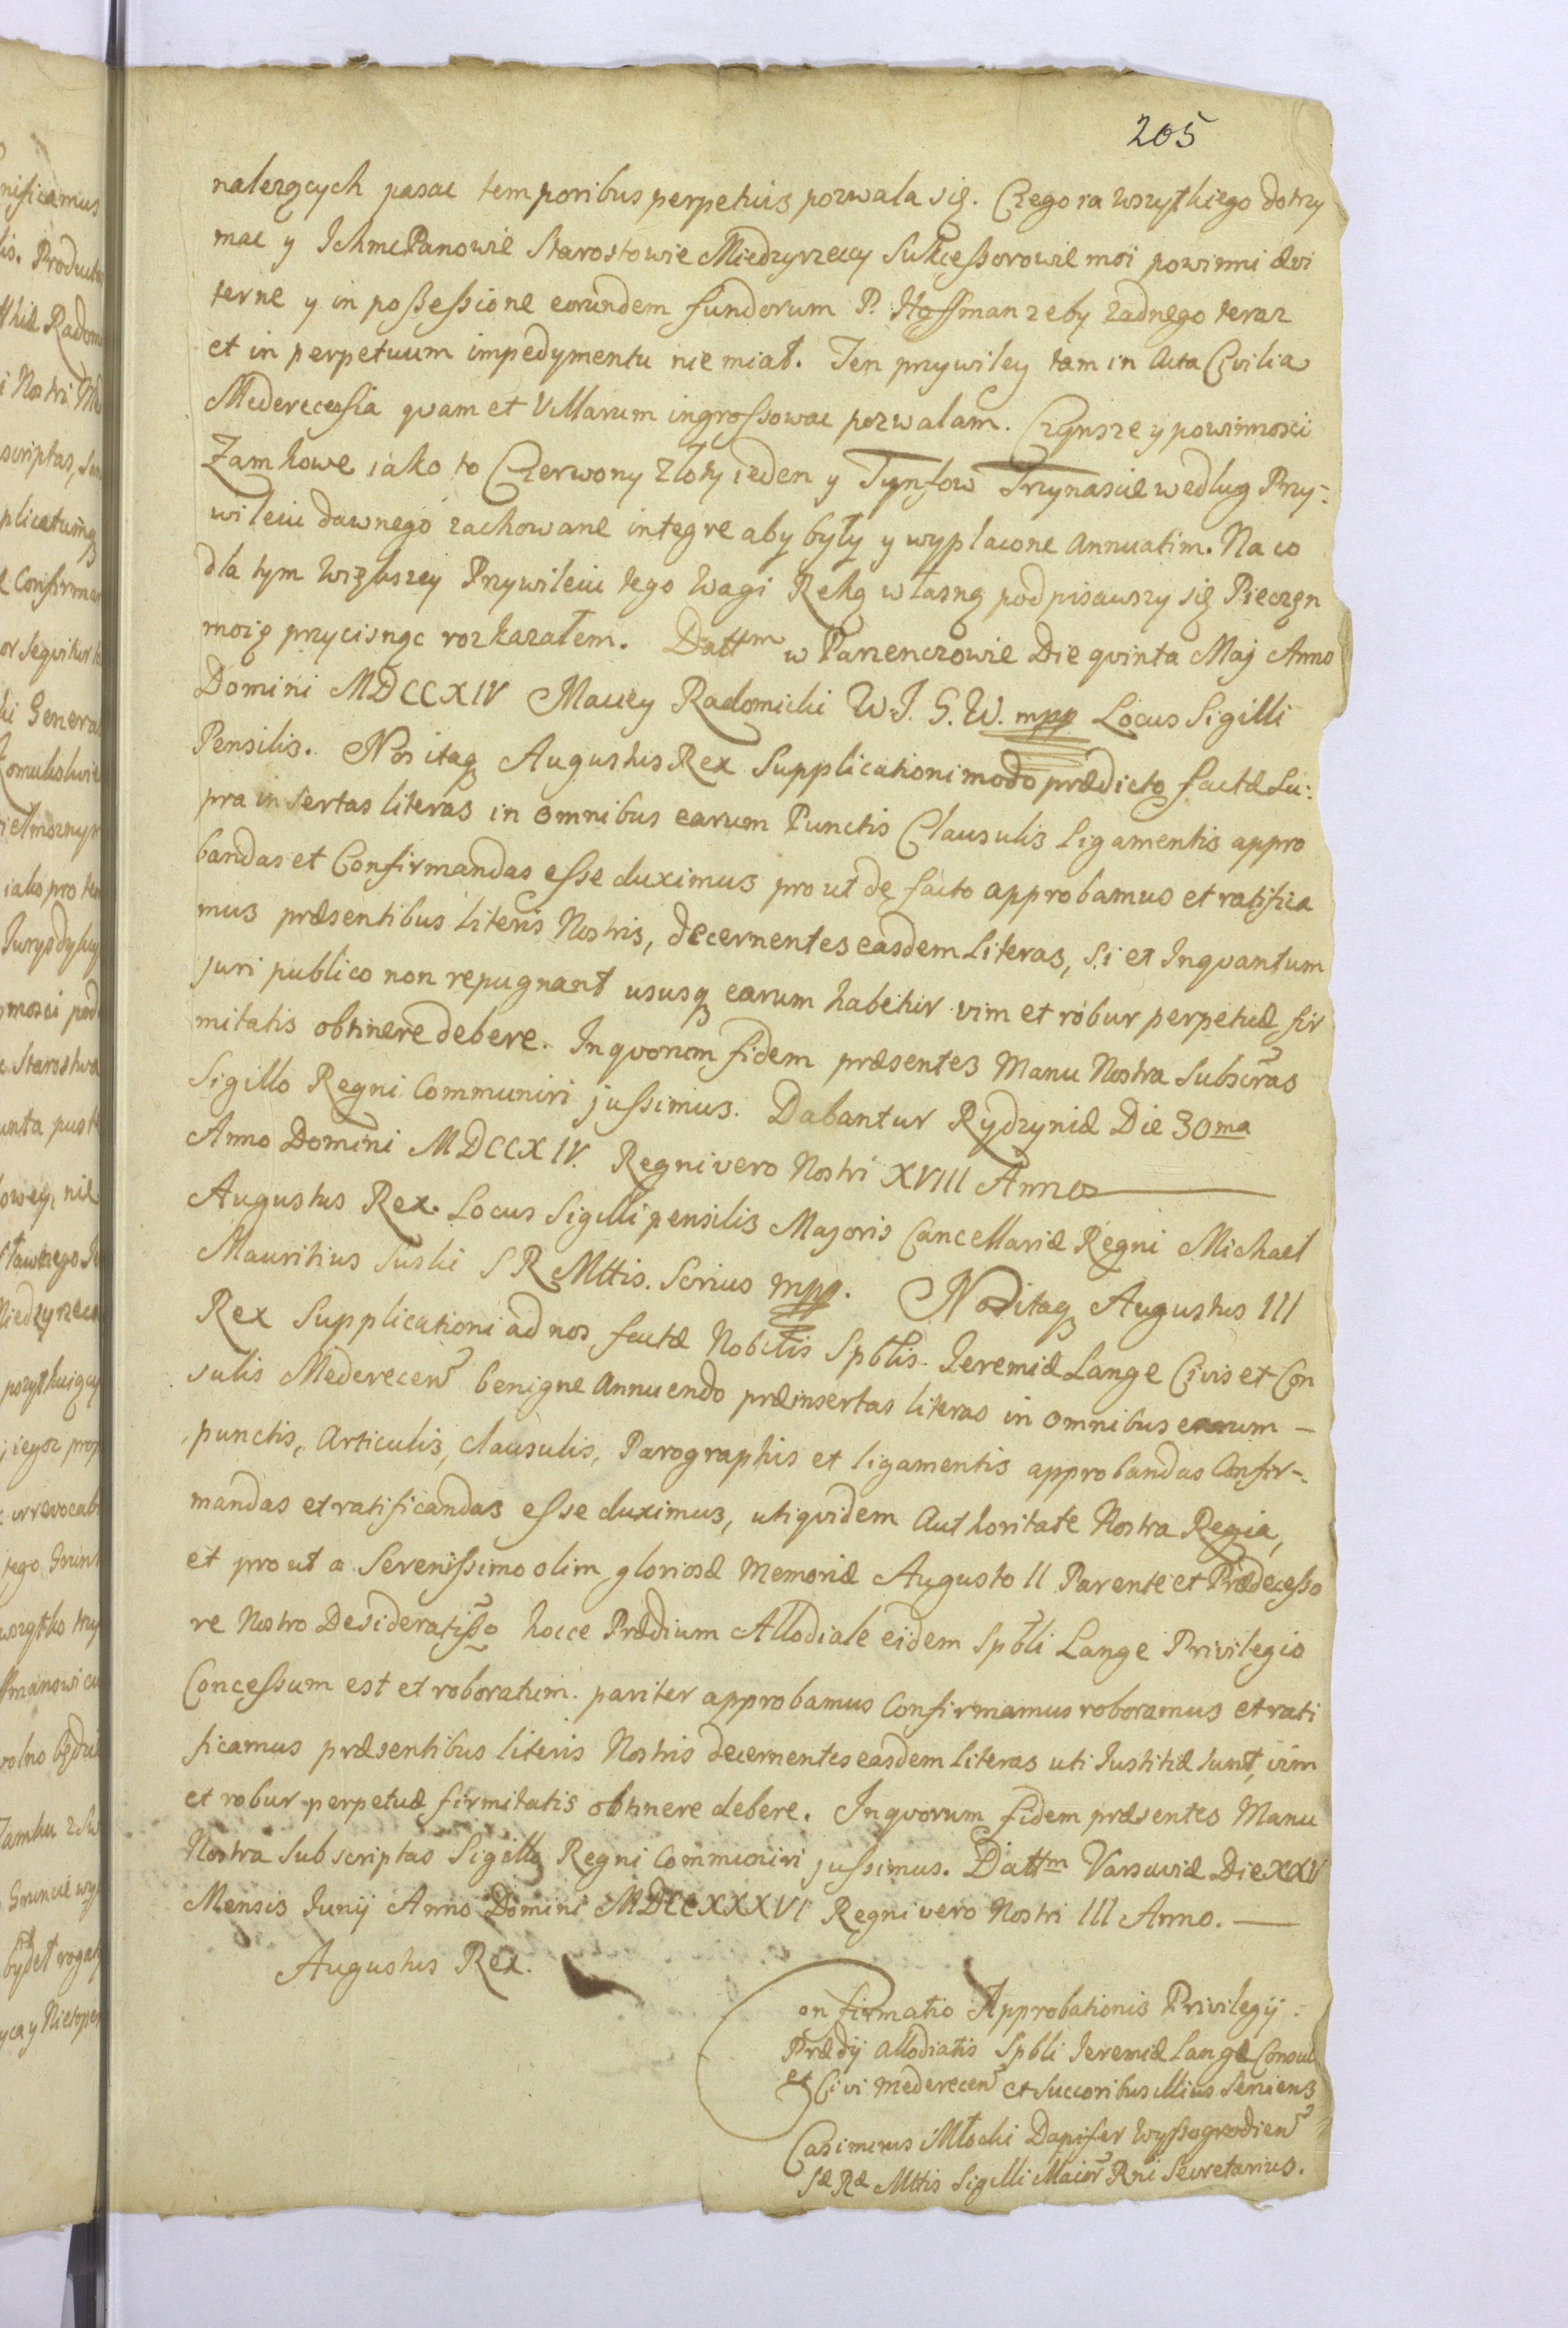 205
nalezących pasac temporibus perpetuis pozwala się. Czego za wszytkiego dotrzy
mac y Ichmc Panowie Starostowie Miedzyrzeccy Sukceßorowie moi powinni ævi
terne y in poßeßione eorundem fundorum P. Hoffman zeby zadnego teraz
et in perpetuum impedymentu nie miał. Ten przywiley tam in Acta Civilia
Mederecensia qvam et Villarum ingroſsowac pozwalam. Czynsze y powinnosci
Zamkowe iako to Czerwony Złoty ieden y Tynfow Trzynascie według Przy-:
wileiu dawnego zachowane integre aby były y wypłacone Annuatim. Na co
dla tym większey Przywileiu tego Wagi Ręką własną podpisawszy się Pieczęn
moię przycisnąc rozkazałem. Dattm w Parzenczowie Die qvinta Maj Anno
Domini MDCCXIV Maciey Radomicki W. J. G. W. mpp Locus Sigilli
Pensilis. Nos itaq Augustus Rex Supplicationi modo prædicto factæ Su:
pra insertas literas in omnibus earum Punctis Clausulis Ligamentis appro
bandas et Confirmandas eſse duximus pro ut de facto approbamus et ratifica
mus præsentibus literis Nostris, decernentes easdem Literas, si et Inqvantum
juri publico non repugnant ususq earum habetur vim et robur perpetuæ fir
mitatis obtinere debere. In qvorum fidem præsentes Manu Nostra Subscras
Sigillo Regni Communiri juſsimus. Dabantur Rydzyniæ Die 30ma
Anno Domini MDCCXIV. Regni vero Nostri XVIII Anno
Augustus Rex. Locus Sigilli pensilis Majoris Cancellariæ Regni Michael
Mauritius Suski S R Mttis. Scrius mpp. Nos itaq Augustus III
Rex Supplicationi ad nos factæ Nobilis Spblis. Jeremiæ Lange Civis et Con
sulis Medereceñ benigne Annuendo præinsertas literas in omnibus earum –
punctis, Articulis, clausulis, Parographis et ligamentis approbandas Confir-:
mandas et ratificandas eſse duximus, uti qvidem Authoritate Nostra Regia,
et pro ut a Sereniſsimo olim gloriosæ Memoriæ Augusto II Parente et Prædeceßo
re Nostro Desideratißo hocce Prædium Allodiale eidem Spbli Lange Privilegio
Conceſsum est et roboratum. pariter approbamus Confirmamus roboramus et rati
ficamus præsentibus literis Nostris decernentes easdem literas uti Justitiæ sunt, vim
et robur perpetuæ firmitatis obtinere debere. In qvorum fidem præsentes Manu
Nostra Subscriptas Sigillo Regni Communiri juſsimus. Dattm Varsaviæ Die XXV
Mensis Junij Anno Domini MDCCXXXVI Regni vero Nostri III Anno. —
Augustus Rex.
Confirmatio Approbationis Privilegij:
Prædij allodialis Spbli Jeremiæ Lange Consul
et Civi Medereceñ et Succoribus illius Serviens
Casimirus Młocki Dapifer Wyßogrodieñ
Sæ Ræ Mttis Sigilli Maior Rni Secretarius.